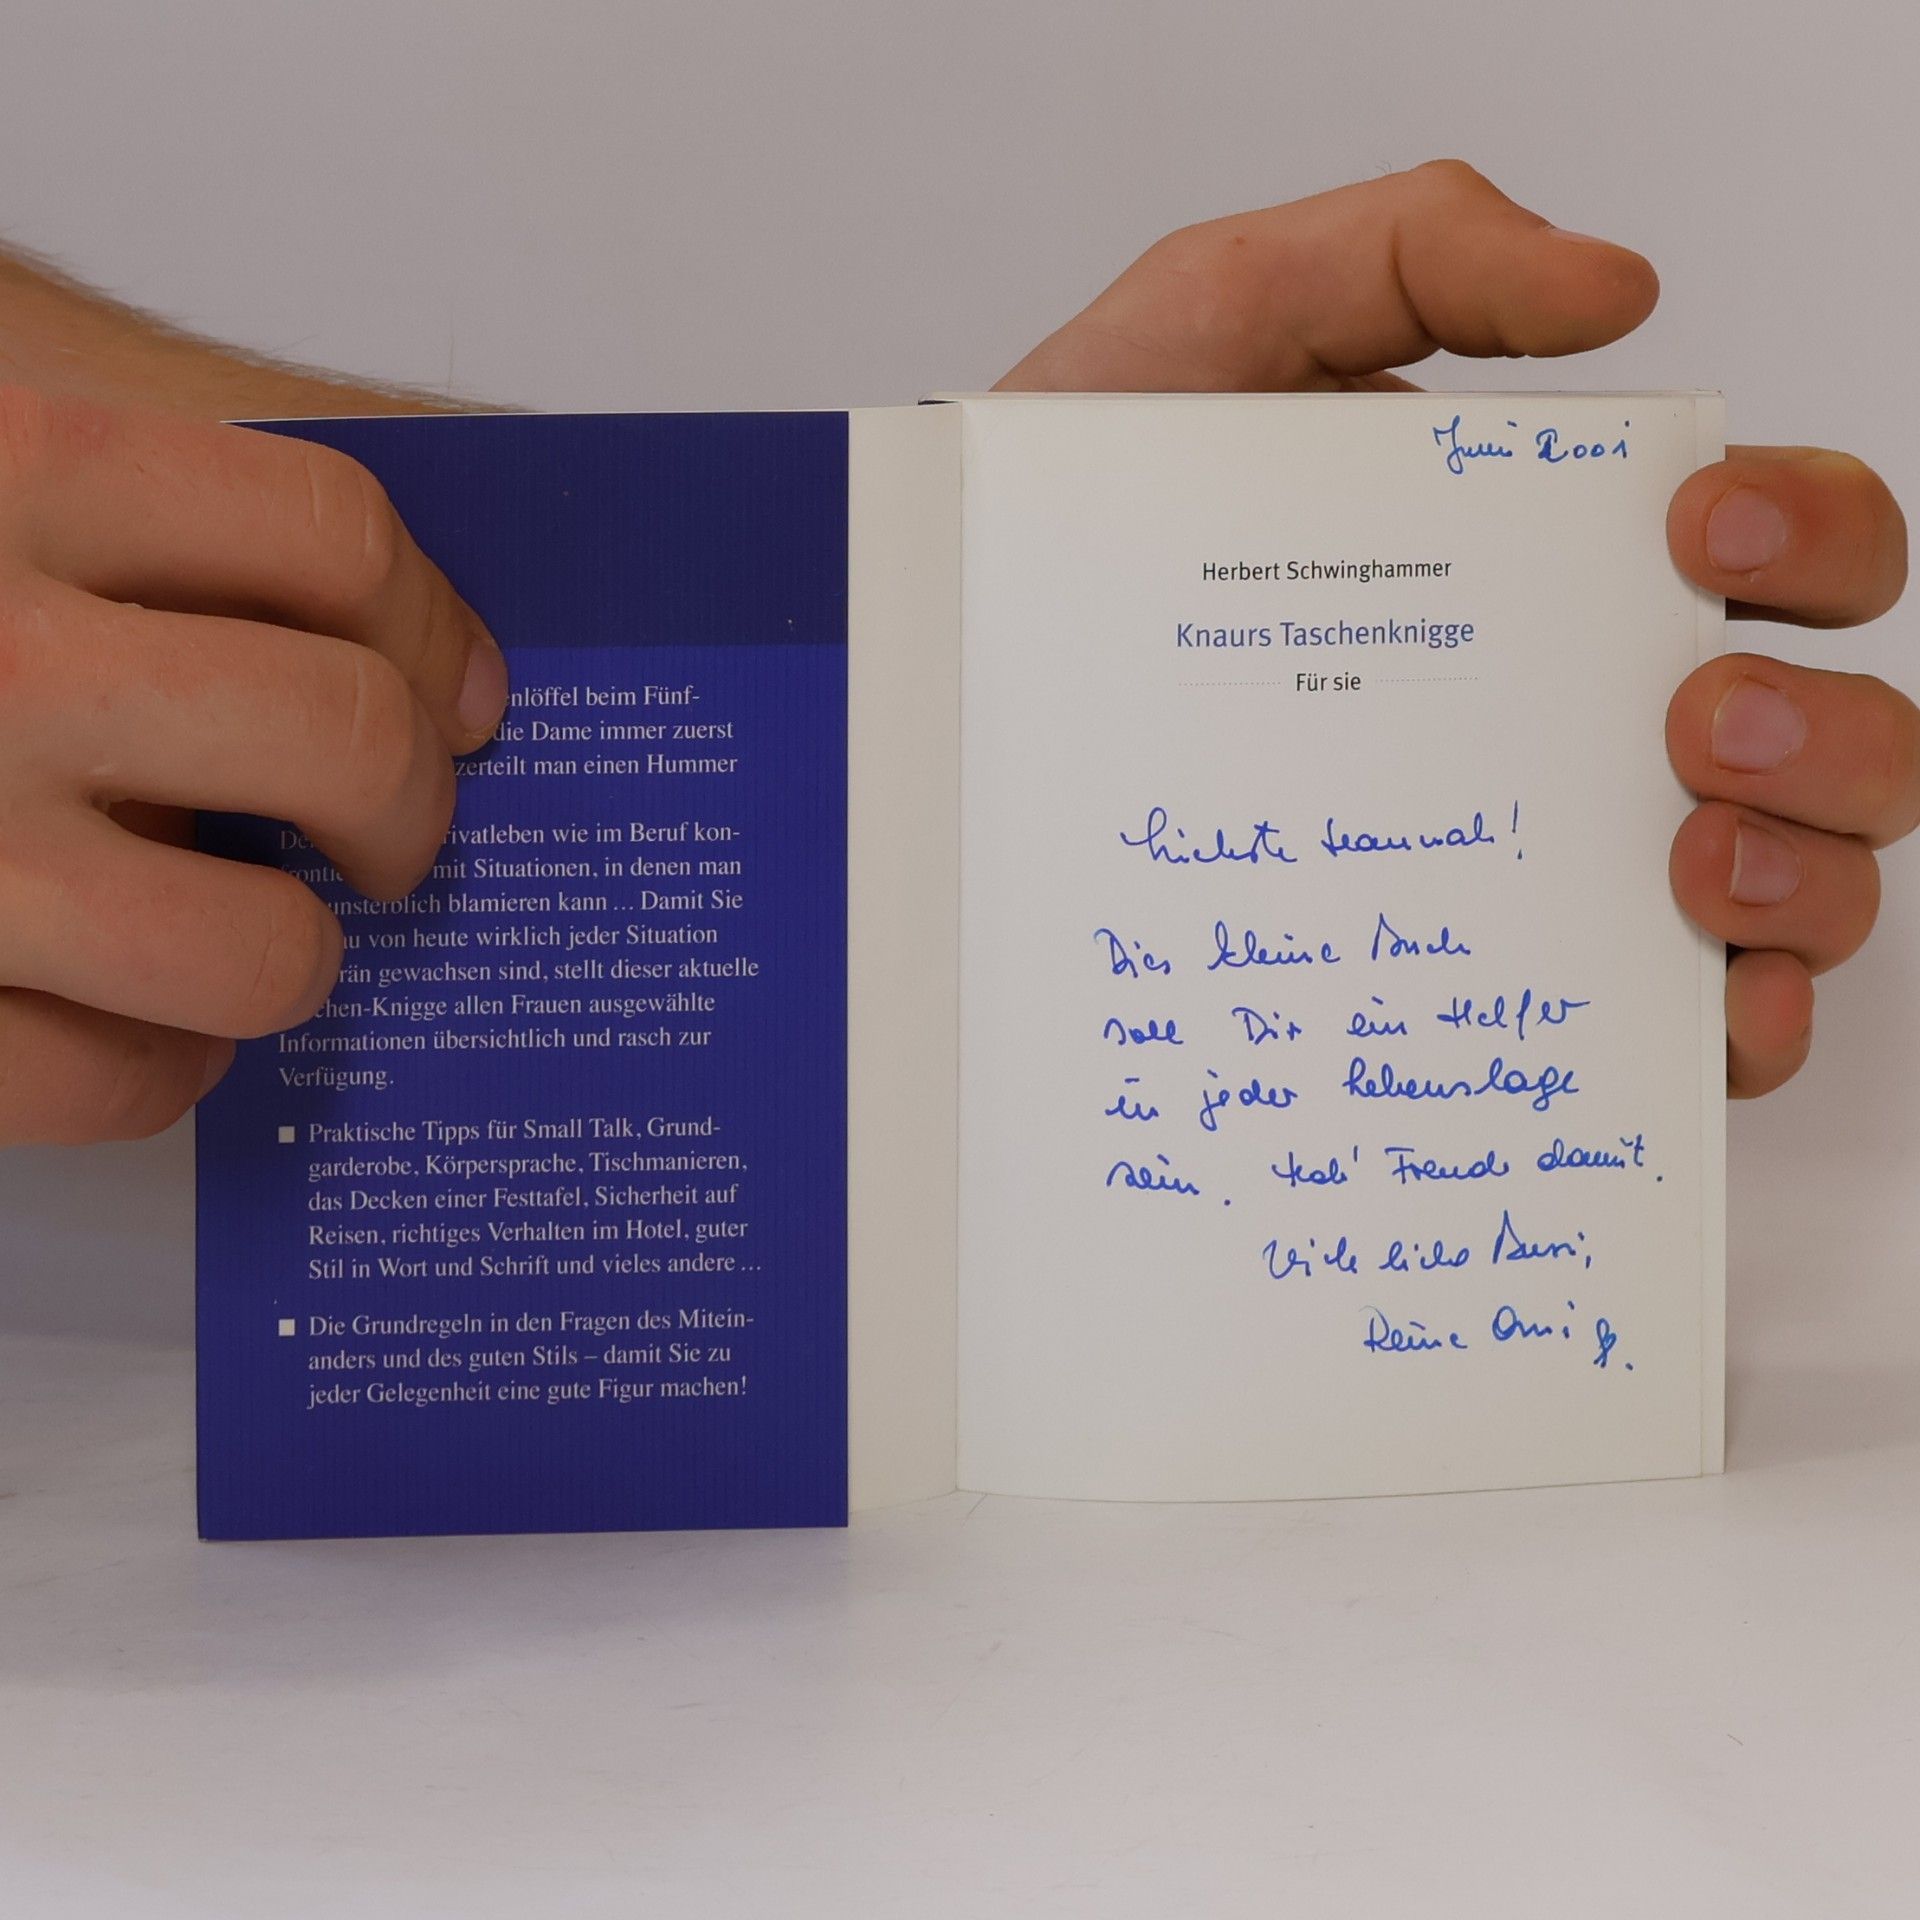 nlöffel beim Fünf-
die Dame immer zuerst
zerteilt man einen Hummer
ivatleben wie im Beruf kon-
mit Situationen, in denen man
unsterblich blamieren kann ... Damit Sie
von heute wirklich jeder Situation
rän gewachsen sind, stellt dieser aktuelle
chen-Knigge allen Frauen ausgewählte
Informationen übersichtlich und rasch zur
Verfügung.
■ Praktische Tipps für Small Talk, Grund-
garderobe, Körpersprache, Tischmanieren,
das Decken einer Festtafel, Sicherheit auf
Reisen, richtiges Verhalten im Hotel, guter
Stil in Wort und Schrift und vieles andere ...
■ Die Grundregeln in den Fragen des Mitein-
anders und des guten Stils – damit Sie zu
jeder Gelegenheit eine gute Figur machen!
Juni 2001
Herbert Schwinghammer
Knaurs Taschenknigge
Für sie
Liebste Hannah!
Dies kleine Buch
soll Dir ein Helfer
in jeder Lebenslage
sein. Hab' Freude damit.
Viele liebe Bussi,
Deine Omi